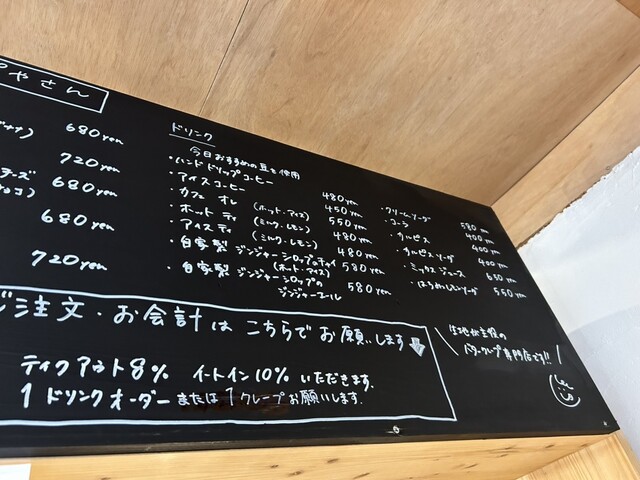 やさん
バナナ)
680yen
720yen
チーズ
680yen
680yen
720yen
ドリンク
今日おすすめの豆を使用
・ハンドドリップコーヒー 480yen
・アイスコーヒー 450yen
・カフェオレ (ホット・アイス) 550yen
・ホットティ (ミルク・レモン) 480yen
・アイスティ (ミルク・レモン) 480yen
・自家製 ジンジャーシロップのチャイ (ホット・アイス) 580yen
・自家製 ジンジャーシロップの ジンジャーエール 580yen
・クリームソーダ 580yen
・コーラ 400yen
・カルピス 400yen
・カルピスソーダ 400yen
・ミックスジュース 650yen
・はちみつレモンソーダ 550yen
ご注文・お会計は こちらで お願いします
テイクアウト8% イートイン10% いただきます。
1ドリンクオーダー または 1クレープお願いします。
生地が主役の
バタークレープ専門店です!!